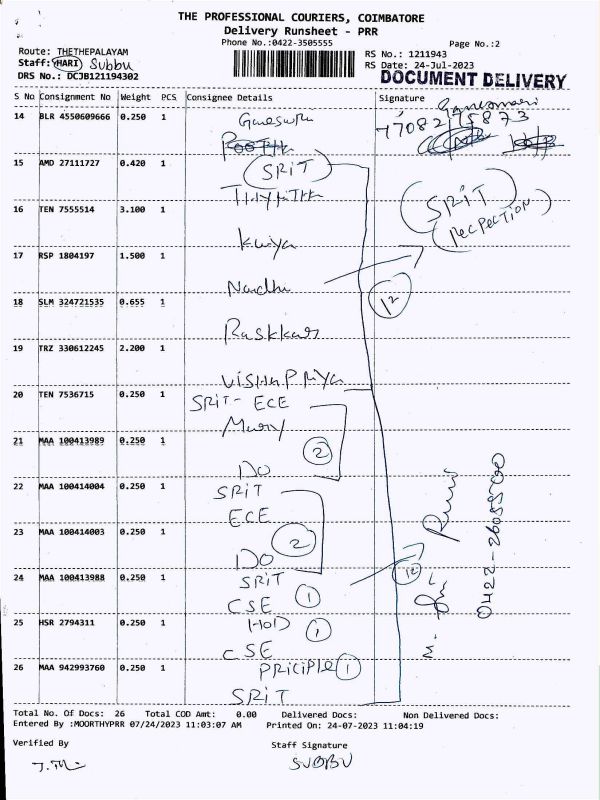 THE PROFESSIONAL COURIERS, COIMBATORE
Delivery Runsheet - PRR
Phone No.:0422-3505555
Page No.:2
Route: THETHEPALAYAM
RS No.: 1211943
Staff: HARI Subbu
RS Date: 24-Jul-2023
DRS No.: DCJB121194302
DOCUMENT DELIVERY
S No Consignment No Weight PCS Consignee Details Signature
14 BLR 4550609666 0.250 1
15 AMD 27111727 0.420 1 SRIT
16 TEN 7555514 3.100 1
SRIT
17 RSP 1804197 1.500 1
Nandhu
12
18 SLM 324721535 0.655 1
19 TRZ 330612245 2.200 1
VISHAPRIYA
20 TEN 7536715 0.250 1 SRIT- ECE
21 MAA 100413989 0.250 1
2
DO
22 MAA 100414004 0.250 1 SRIT
ECE
23 MAA 100414003 0.250 1
2
DO
24 MAA 100413988 0.250 1 SRIT
12
CSE 1
25 HSR 2794311 0.250 1 HOD 1
CSE
26 MAA 942993760 0.250 1 PRICIPLE 1
SRIT
Total No. Of Docs: 26 Total COD Amt: 0.00 Delivered Docs: Non Delivered Docs:
Entered By :MOORTHYPRR 07/24/2023 11:03:07 AM Printed On: 24-07-2023 11:04:19
Verified By
Staff Signature
SUBBU